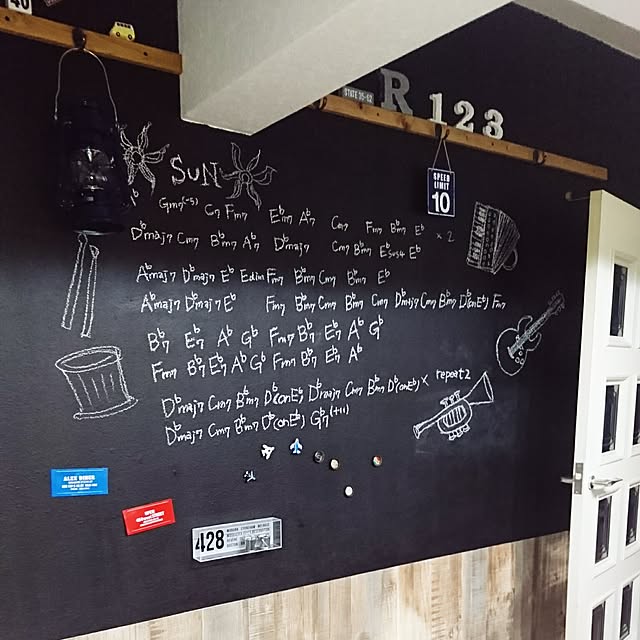 40
STATE 35-52
R 123
SPEED
LIMIT
10
SUN
Gm7(-5) C7 Fm7 E♭m7 A♭7 Cm7 Fm7 B♭m7 E♭
D♭maj7 Cm7 B♭m7 A♭7 D♭maj7 Cm7 B♭m7 E♭sus4 E♭ ×2
A♭maj7 D♭maj7 E♭ Edim Fm7 B♭m7 Cm7 B♭m7 E♭
A♭maj7 D♭maj7 E♭ Fm7 B♭m7 Cm7 B♭m7 Cm7 D♭maj7 Cm7 B♭m7 D♭(onE♭) Fm7
B♭7 E♭7 A♭ G♭ Fm7 B♭7 E♭7 A♭ G♭
Fm7 B♭7 E♭7 A♭ G♭ Fm7 B♭7 E♭7 A♭
D♭maj7 Cm7 B♭m7 D♭(onE♭) D♭maj7 Cm7 B♭m7 D♭(onE♭) × repeat2
D♭maj7 Cm7 B♭m7 D♭(onE♭) G♭7(+11)
ALEX DINER
428